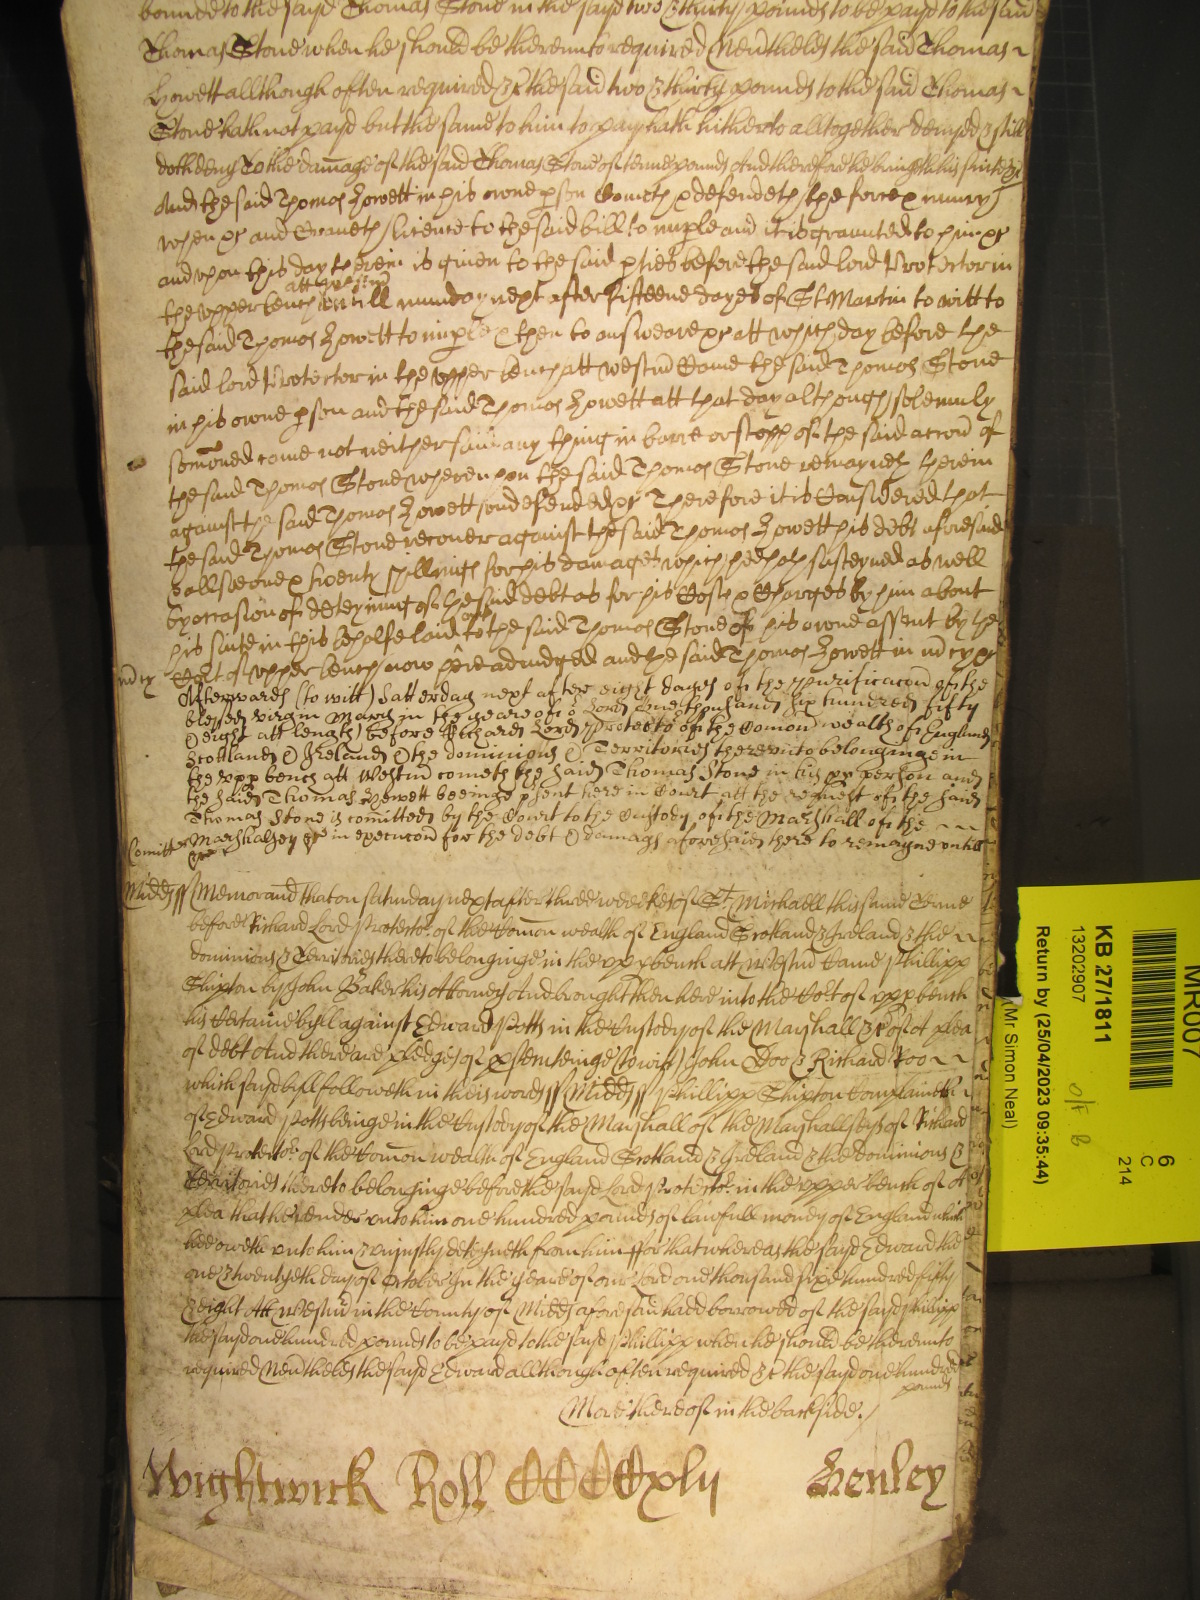 bounde to the sayd Thomas Stone in the sayd two & thirty pounds to be payd to the said
Thomas Stone when he should be thereunto required Nevertheles the said Thomas
Howett allthough often required &c the said two & thirty pounds to the said Thomas
Stone hath not payd but the same to him to pay hath hitherto alltogether denyed & still
doth deny To the damage of the said Thomas Stone of tenne pounds And therefore he bringeth his suite &c
And the said Thomas Howett in his owne pson Cometh & defendeth the force & iniury
when &c and Craueth licence to the said bill to imple and it is graunted to him &c
and vpon this day therein is giuen to the said pties before the said lord Protector in
the vpper bench att Westm vntill munday next after fifteene dayes of St Martin to witt to
the said Thomas Howett to imple & then to answeare &c att which day before the
said lord Protector in the vpper bench att Westm Came the said Thomas Stone
in his owne pson and the said Thomas Howett att that day although solemnly
somoned came not neither said any thing in barre or stopp of the said accon of
the said Thomas Stone whereupon the said Thomas Stone remayneth therein
against the said Thomas Howett vndefended &c Therefore it is Considered that
the said Thomas Stone recouer against the said Thomas Howett his debt aforesaid
& allsoe one & twenty shillings for his damages which he hath susteyned as well
by occasion of deteyning of the said debt as for his Costs & Charges by him about
his suite in this behalfe laid out to the said Thomas Stone of his owne assent by the
Cort of vpper bench now here adiudged and the said Thomas Howett in mcy &c
mcy
Afterwards (to witt) Satterday next after eight dayes of the Purificacon of the
blessed virgin Mary in the yeare of or Lord One thousand six hundred fifty
& eight att length before Richard Lord Protector of the Comon wealth of England
Scotland & Ireland & the dominions & Territories therevnto belonginge in
the vpp bench att Westm cometh the said Thomas Stone in his pper person and
the said Thomas Howett beeinge psent here in Court att the request of the said
Thomas Stone is comitted by the Court to the Custody of the Marshall of the
Comitt Marshalsey &c in execucon for the debt & damags aforesaid there to remayne vntill
&c
Midds ss Memorand that on Saturday next after three weekes of St Michaell this same Terme
before Richard Lord Protector of the Comon wealth of England Scotland & Ireland & the
dominions & Territories thereto belonginge in the vpp bench att Westm Came Phillipp
Shipton by John Baker his Attorney And brought then here into the Cort of vpp bench
his Certaine byll against Edward Potts in the Custody of the Marshall &c of A plea
of debt And there are pledges of psecuteinge (to witt) John Doo & Richard Roo
which sayd byll followeth in theis words ss Midds ss Phillipp Shipton Complaineth
of Edward Potts beinge in the Custody of the Marshall of the Marshallseys of Richard
Lord Protector of the Comon wealth of England Scotland & Ireland & the dominions &
Territories thereto belonginge before the sayd Lord Protector in the vpper bench of A
plea that he render vnto him one hundred pounds of lawfull money of England which
hee oweth vnto him & vniustly deteyneth from him ffor that whereas the sayd Edward the
one & twentyeth day of October In the yeare of our Lord one thousand sixe hundred fifty
& eight Att Westm in the County of Midds aforesaid had borrowed of the sayd Phillipp
the sayd one hundred pounds to be payd to the sayd Phillipp when he should be thereunto
required Nevertheles the sayd Edward allthough often required &c the sayd one hundred
pounds
More thereof in the backside
Wightwick Roll CCCCxlij Henley
MR007
KB 27/1811
13202907
Return by (25/04/2023 09:35:44)
(Mr Simon Neal)
6
C
214